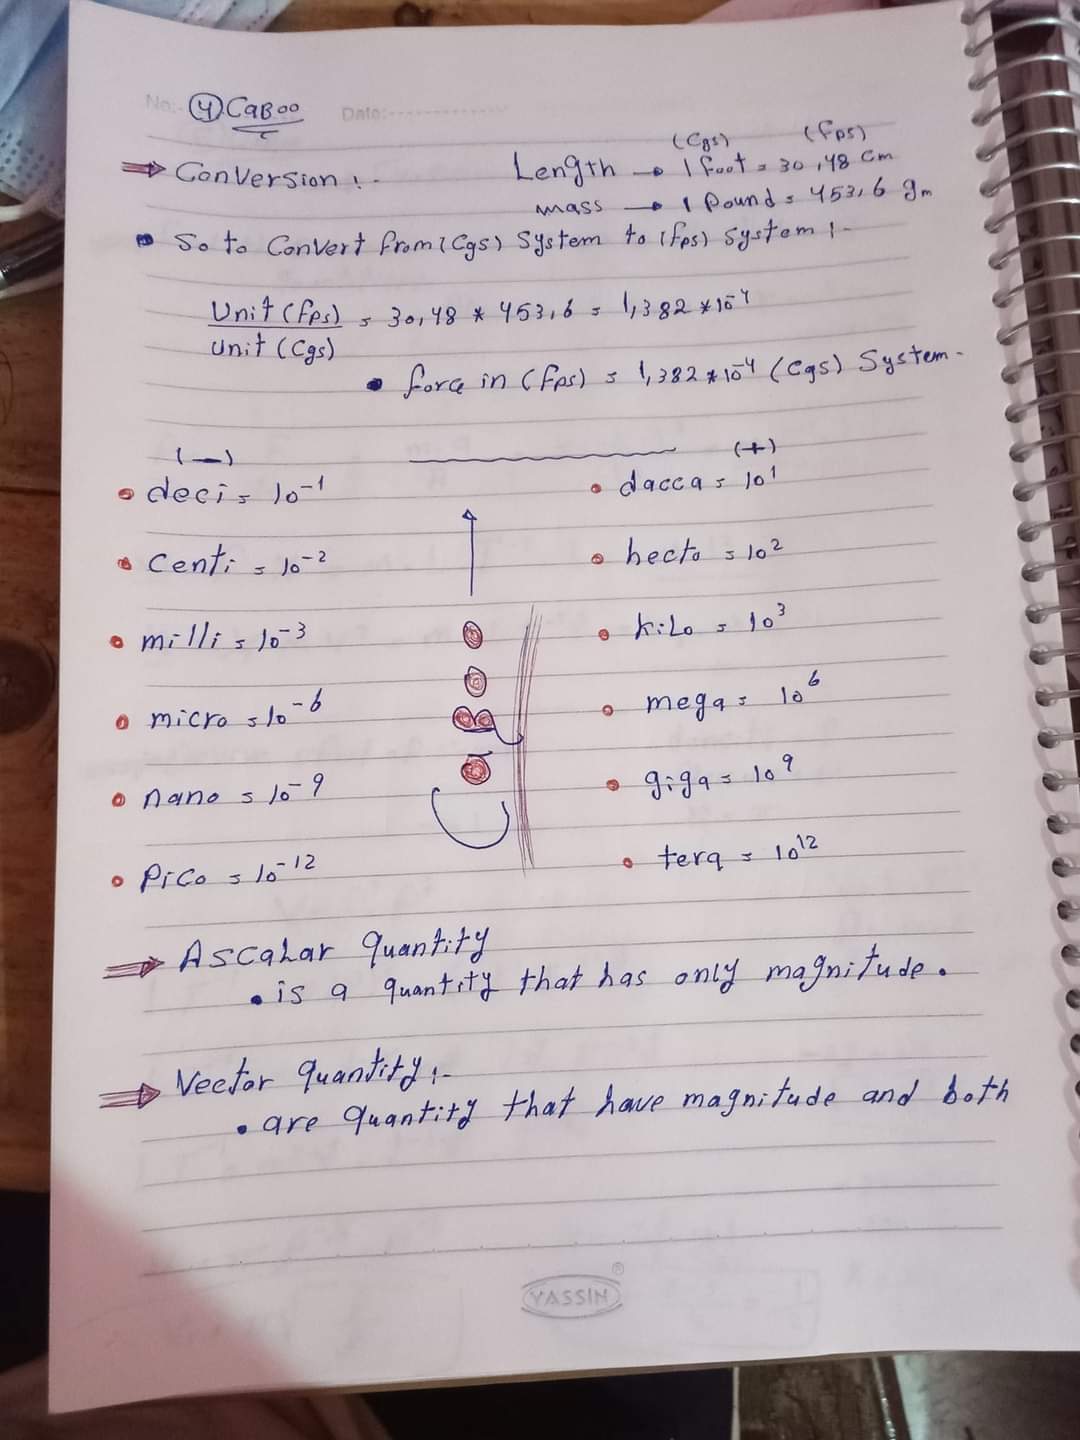 No:- (4) CaBoo Date:-------------
(Cgs) (fps)
⇒ Conversion :- Length → 1 foot = 30,48 cm
mass → 1 Pound = 453,6 gm
• So to Convert from (Cgs) System to (fps) System :-
Unit (fps) / Unit (Cgs) = 30,48 * 453,6 = 1,382 * 10^-4
• force in (fps) = 1,382 * 10^-4 (Cgs) System.
(-) (+)
• deci = 10^-1 • dacca = 10^1
• Centi = 10^-2 • hecto = 10^2
• milli = 10^-3 • kilo = 10^3
• micro = 10^-6 • mega = 10^6
• nano = 10^-9 • giga = 10^9
• Pico = 10^-12 • tera = 10^12
⇒ A scalar quantity
• is a quantity that has only magnitude.
⇒ Vector quantity :-
• are quantity that have magnitude and both
YASSIN®